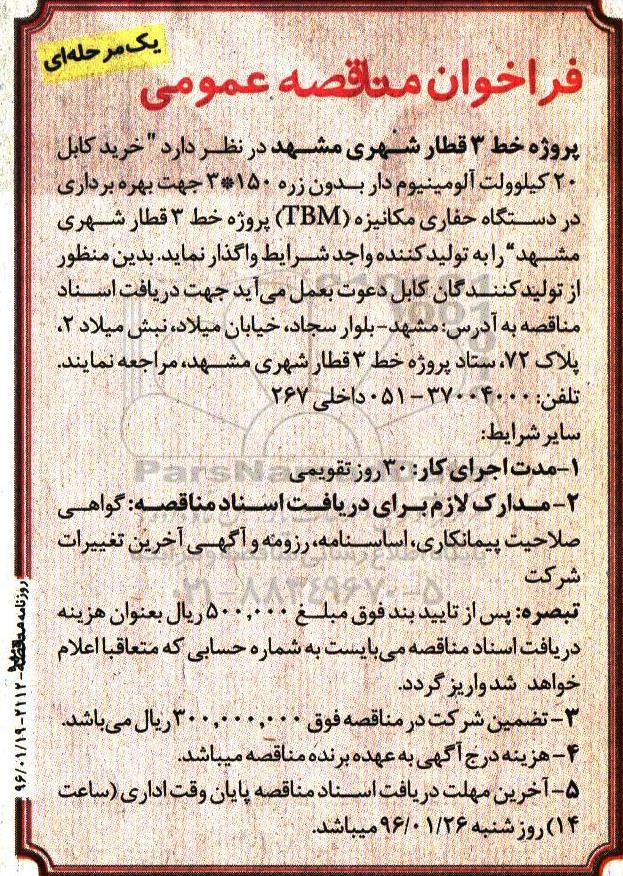 یک مرحله‌ای
فراخوان مناقصه عمومی
پروژه خط ۳ قطار شهری مشهد در نظر دارد "خرید کابل
۲۰ کیلوولت آلومینیوم دار بدون زره ۱۵۰*۳ جهت بهره برداری
در دستگاه حفاری مکانیزه (TBM) پروژه خط ۳ قطار شهری
مشهد" را به تولیدکننده واجد شرایط واگذار نماید. بدین منظور
از تولیدکنندگان کابل دعوت بعمل می‌آید جهت دریافت اسناد
مناقصه به آدرس: مشهد- بلوار سجاد، خیابان میلاد، نبش میلاد ۲،
پلاک ۷۲، ستاد پروژه خط ۳ قطار شهری مشهد، مراجعه نمایند.
تلفن: ۳۷۰۰۴۰۰۰ - ۰۵۱ داخلی ۲۶۷
سایر شرایط:
۱- مدت اجرای کار: ۳۰ روز تقویمی
۲- مدارک لازم برای دریافت اسناد مناقصه: گواهی
صلاحیت پیمانکاری، اساسنامه، رزومه و آگهی آخرین تغییرات
شرکت
تبصره: پس از تایید بند فوق مبلغ ۵۰۰,۰۰۰ ریال بعنوان هزینه
دریافت اسناد مناقصه می‌بایست به شماره حسابی که متعاقبا اعلام
خواهد شد واریز گردد.
۳- تضمین شرکت در مناقصه فوق ۳۰۰,۰۰۰,۰۰۰ ریال می‌باشد.
۴- هزینه درج آگهی به عهده برنده مناقصه میباشد.
۵- آخرین مهلت دریافت اسناد مناقصه پایان وقت اداری (ساعت
۱۴) روز شنبه ۹۶/۰۱/۲۶ میباشد.
ParsNamadData
۰۲۱-۸۸۳۴۹۶۷۰-۵
روزنامه مناقصه مزایده - ۲۱۱۲ - ۹۶/۰۱/۱۹